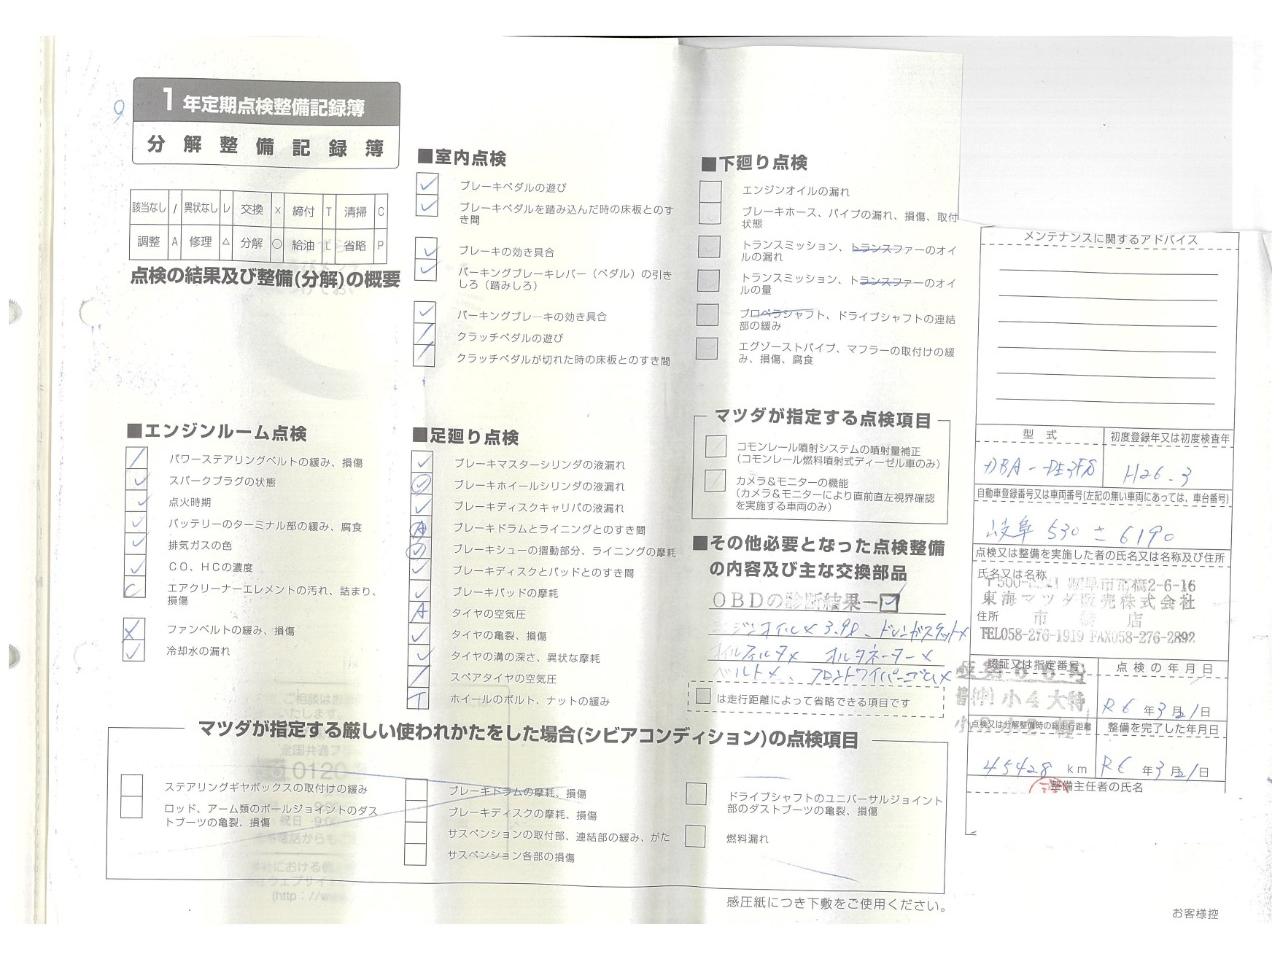 1年定期点検整備記録簿
分解整備記録簿
該当なし / 異状なし レ 交換 × 締付 T 清掃 C
調整 A 修理 △ 分解 ○ 給油 L 省略 P
点検の結果及び整備(分解)の概要
■エンジンルーム点検
パワーステアリングベルトの緩み、損傷
スパークプラグの状態
点火時期
バッテリーのターミナル部の緩み、腐食
排気ガスの色
CO、HCの濃度
エアクリーナーエレメントの汚れ、詰まり、
損傷
ファンベルトの緩み、損傷
冷却水の漏れ
■室内点検
ブレーキペダルの遊び
ブレーキペダルを踏み込んだ時の床板とのす
き間
ブレーキの効き具合
パーキングブレーキレバー(ペダル)の引き
しろ(踏みしろ)
パーキングブレーキの効き具合
クラッチペダルの遊び
クラッチペダルが切れた時の床板とのすき間
■足廻り点検
ブレーキマスターシリンダの液漏れ
ブレーキホイールシリンダの液漏れ
ブレーキディスクキャリパの液漏れ
ブレーキドラムとライニングとのすき間
ブレーキシューの摺動部分、ライニングの摩耗
ブレーキディスクとパッドとのすき間
ブレーキパッドの摩耗
タイヤの空気圧
タイヤの亀裂、損傷
タイヤの溝の深さ、異状な摩耗
スペアタイヤの空気圧
ホイールのボルト、ナットの緩み
■下廻り点検
エンジンオイルの漏れ
ブレーキホース、パイプの漏れ、損傷、取付
状態
トランスミッション、トランスファーのオイ
ルの漏れ
トランスミッション、トランスファーのオイ
ルの量
プロペラシャフト、ドライブシャフトの連結
部の緩み
エグゾーストパイプ、マフラーの取付けの緩
み、損傷、腐食
マツダが指定する点検項目
コモンレール噴射システムの噴射量補正
(コモンレール燃料噴射式ディーゼル車のみ)
カメラ&モニターの機能
(カメラ&モニターにより直前直左視界確認
を実施する車両のみ)
■その他必要となった点検整備
の内容及び主な交換部品
OBDの診断結果
エンジンオイル× 3.9L、ドレンガスケット×
オイルフィルタ× オルタネーター×
ベルト×、フロントワイパーゴム×
は走行距離によって省略できる項目です
マツダが指定する厳しい使われかたをした場合(シビアコンディション)の点検項目
ステアリングギヤボックスの取付けの緩み
ロッド、アーム類のボールジョイントのダス
トブーツの亀裂、損傷
ブレーキドラムの摩耗、損傷
ブレーキディスクの摩耗、損傷
サスペンションの取付部、連結部の緩み、がた
サスペンション各部の損傷
ドライブシャフトのユニバーサルジョイント
部のダストブーツの亀裂、損傷
燃料漏れ
感圧紙につき下敷をご使用ください。
メンテナンスに関するアドバイス
型式 初度登録年又は初度検査年
DBA-DE3FS H26.3
自動車登録番号又は車両番号(左記の無い車両にあっては、車台番号)
岐阜 530 さ 6190
点検又は整備を実施した者の氏名又は名称及び住所
氏名又は名称
東海マツダ販売株式会社
住所
TEL058-276-1919 FAX058-276-2892
認証又は指定番号 点検の年月日
R6年3月21日
点検又は分解整備時の総走行距離 整備を完了した年月日
45428 km R6年3月21日
整備主任者の氏名
お客様控